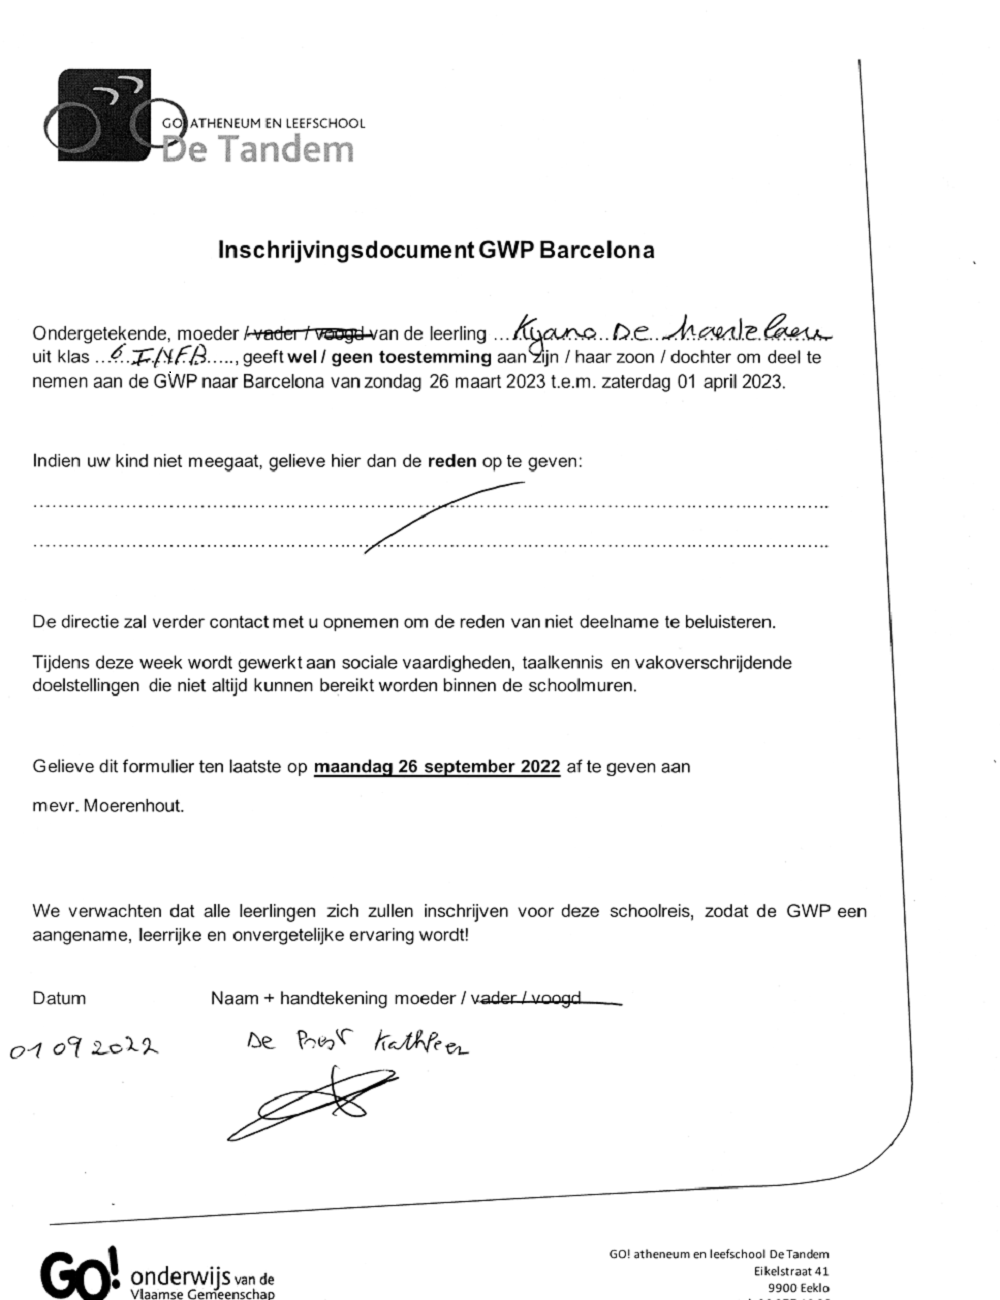 GO! ATHENEUM EN LEEFSCHOOL
De Tandem
Inschrijvingsdocument GWP Barcelona
Ondergetekende, moeder / vader / voogd van de leerling ... Kyano De Maertelaere
uit klas ...6 INFB....., geeft wel / geen toestemming aan zijn / haar zoon / dochter om deel te
nemen aan de GWP naar Barcelona van zondag 26 maart 2023 t.e.m. zaterdag 01 april 2023.
Indien uw kind niet meegaat, gelieve hier dan de reden op te geven:
De directie zal verder contact met u opnemen om de reden van niet deelname te beluisteren.
Tijdens deze week wordt gewerkt aan sociale vaardigheden, taalkennis en vakoverschrijdende
doelstellingen die niet altijd kunnen bereikt worden binnen de schoolmuren.
Gelieve dit formulier ten laatste op maandag 26 september 2022 af te geven aan
mevr. Moerenhout.
We verwachten dat alle leerlingen zich zullen inschrijven voor deze schoolreis, zodat de GWP een
aangename, leerrijke en onvergetelijke ervaring wordt!
Datum Naam + handtekening moeder / vader / voogd
01 09 2022 De Kathleen
GO! atheneum en leefschool De Tandem
Eikelstraat 41
GO! onderwijs van de
9900 Eeklo
Vlaamse Gemeenschap